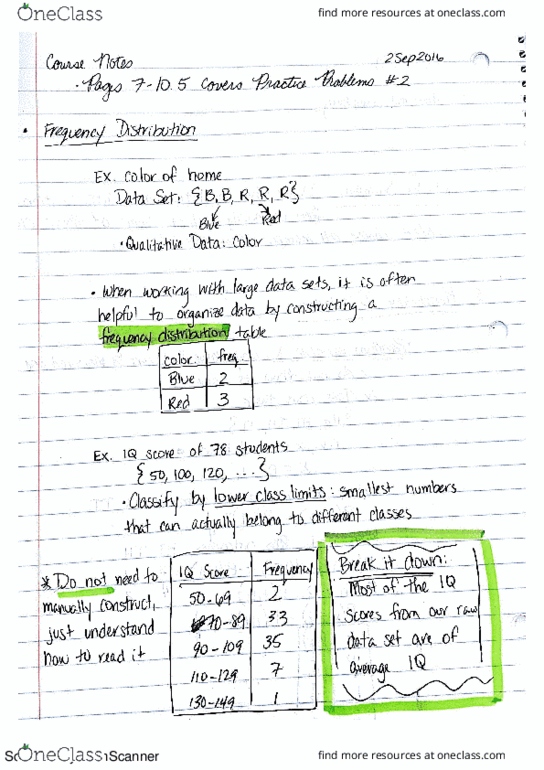 OneClass
find more resources at oneclass.com
Course Notes
2Sep2016
· Pags 7-10.5 covers Practice Problems #2
• Frequency Distribution
Ex. color of home
Data Set: {B, B, R, R, R}
Blue
Red
· Qualitative Data: color
• When working with large data sets, it is often
helpful to organize data by constructing a
frequency distribution table
color freq
Blue 2
Red 3
Ex. IQ score of 78 students
{50, 100, 120, ...}
• Classify by lower class limits: smallest numbers
that can actually belong to different classes
* Do not need to
manually construct,
just understand
how to read it
IQ Score Frequency
50-69 2
70-89 33
90-109 35
110-129 7
130-149 1
Break it down:
Most of the IQ
scores from our raw
data set are of
average IQ
OneClass
Scanner
find more resources at oneclass.com